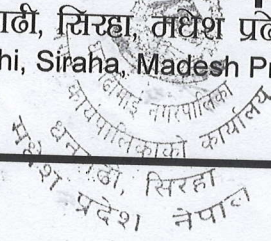 गढी, सिरहा, मधेश प्रदे
hi, Siraha, Madesh Pr
नगरपालिका
कार्यपालिकाको कार्यालय
सिरहा
मधेश प्रदेश नेपाल